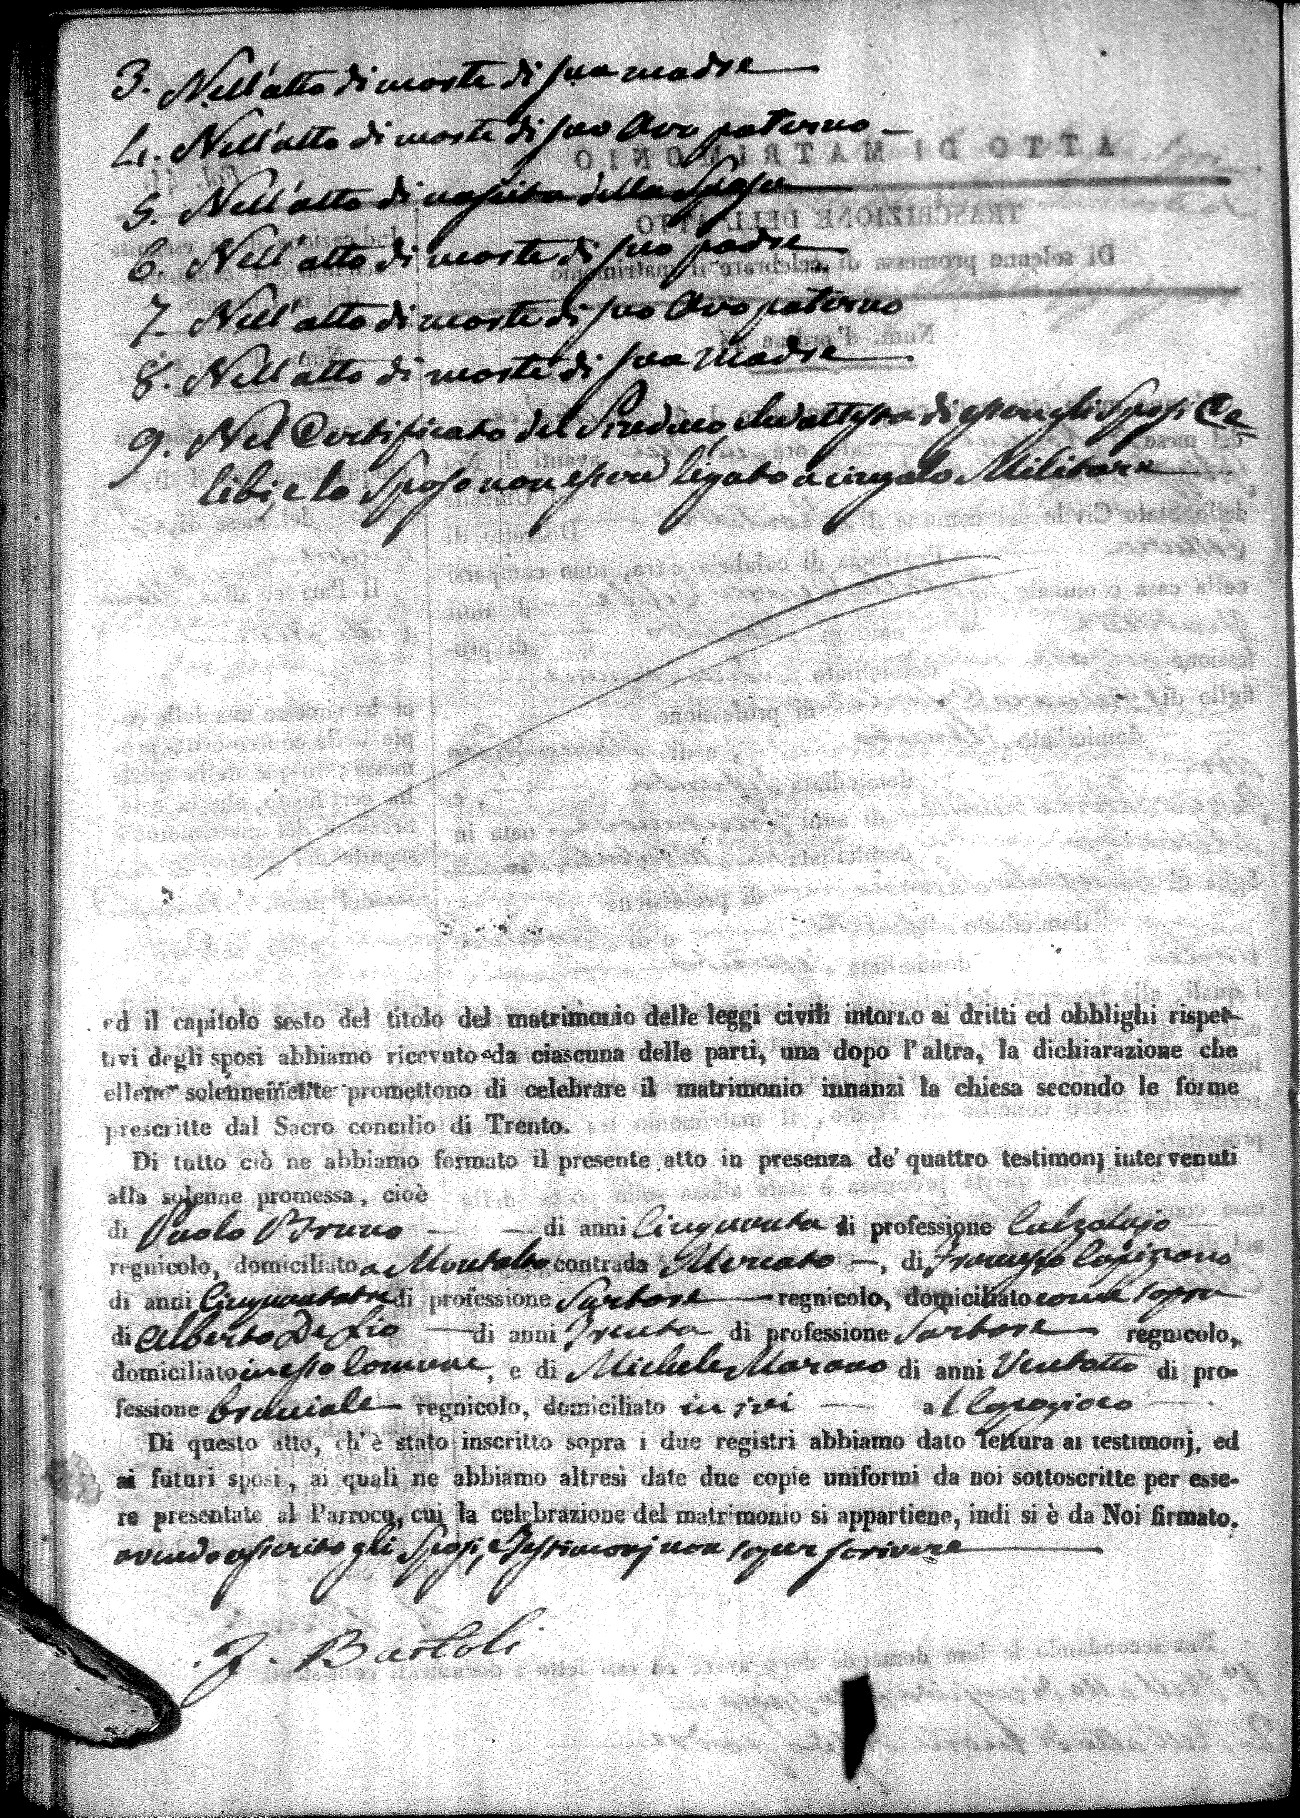 3. Nell'atto di morte di sua madre
4. Nell'atto di morte di suo Avo paterno
5. Nell'atto di nascita della Sposa
6. Nell'atto di morte di suo padre
7. Nell'atto di morte di suo Avo paterno
8. Nell'atto di morte di sua Madre
9. Nel Certificato del Sindaco che attesta di essere gli Sposi Ce=
libi, e lo Sposo non essere ligato a cingolo Militare
ed il capitolo sesto del titolo del matrimonio delle leggi civili intorno ai dritti ed obblighi rispet-
tivi degli sposi abbiamo ricevuto da ciascuna delle parti, una dopo l'altra, la dichiarazione che
elleno solennemente promettono di celebrare il matrimonio innanzi la chiesa secondo le forme
prescritte dal Sacro concilio di Trento.
Di tutto ciò ne abbiamo formato il presente atto in presenza de' quattro testimonj intervenuti
alla solenne promessa, cioè
di Paolo Bruno di anni Cinquanta di professione Calzolajo
regnicolo, domiciliato a Montalto contrada Mercato, di Francesco
di anni Cinquantatre di professione Sartore regnicolo, domiciliato come sopra
di Alberto De Lio di anni Trenta di professione Sartore regnicolo,
domiciliato in esso Comune, e di Michele Marano di anni Ventotto di pro-
fessione bracciale regnicolo, domiciliato in ivi a
Di questo atto, ch'è stato inscritto sopra i due registri abbiamo dato lettura ai testimonj, ed
ai futuri sposi, ai quali ne abbiamo altresì date due copie uniformi da noi sottoscritte per esse-
re presentate al Parroco, cui la celebrazione del matrimonio si appartiene, indi si è da Noi firmato,
avendo asserito gli Sposi, e Testimonj non saper scrivere
F. Bartoli